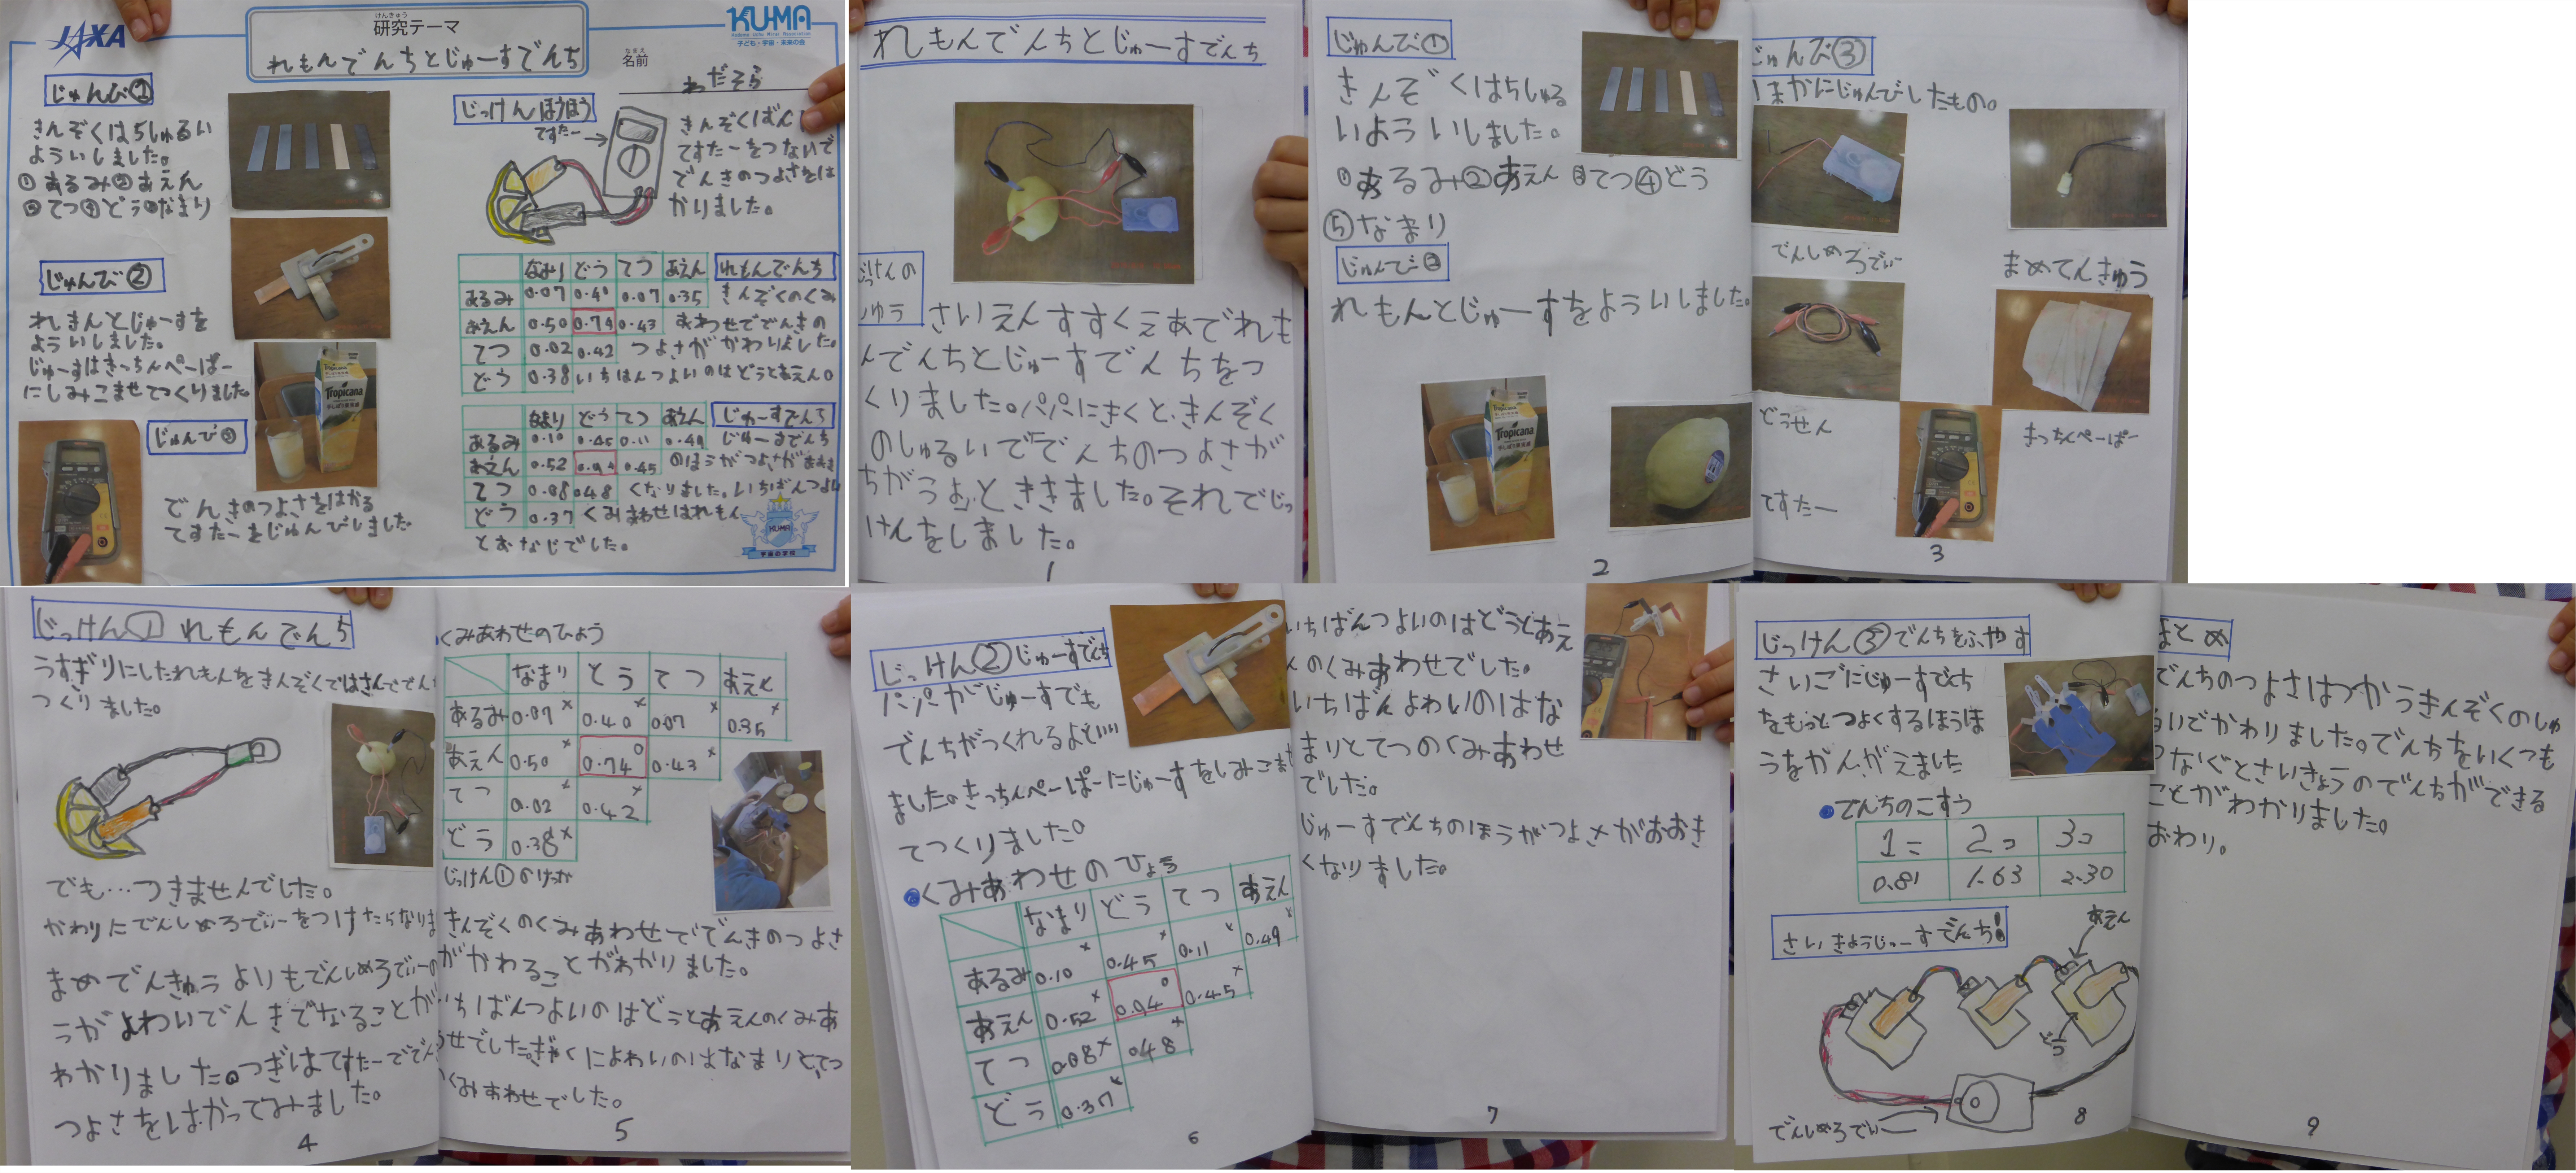 JAXA
けんきゅう
研究テーマ
れもんでんちとじゅーすでんち
KU-MA
子ども・宇宙・未来の会
なまえ
名前
わだそら
じゅんび①
きんぞくは5しゅるい
よういしました。
①あるみ②あえん
③てつ④どう⑤なまり
じゅんび②
れもんとじゅーすを
よういしました。
じゅーすはきっちんぺーぱー
にしみこませてつくりました。
Tropicana
じゅんび③
でんきのつよさをはかる
てすたーをじゅんびしました。
じっけんほうほう
てすたー
きんぞくばんに
てすたーをつないで
でんきのつよさをは
かりました。
なまり どう てつ あえん
れもんでんち
あるみ 0.07 0.40 0.07 0.35
きんぞくのくみ
あえん 0.50 0.74 0.43
あわせででんきの
てつ 0.02 0.42
つよさがかわりました。
どう 0.38
いちばんつよいのはどうとあえん。
なまり どう てつ あえん
じゅーすでんち
あるみ 0.10 0.45 0.11 0.49
じゅーすでんち
あえん 0.52 0.94 0.45
のほうがつよさがおおき
てつ 0.08 0.48
くなりました。いちばんつよい
どう 0.37
くみあわせはれもん
とおなじでした。
KU-MA
宇宙の学校
れもんでんちとじゅーすでんち
さいえんすすくえあでれも
んでんちとじゅーすでんちをつ
くりました。パパにきくと、きんぞく
のしゅるいででんちのつよさが
ちがうよ、とききました。それでじっ
けんをしました。
1
じゅんび①
きんぞくは5しゅる
いよういしました。
①あるみ②あえん③てつ④どう
⑤なまり
じゅんび②
れもんとじゅーすをよういしました。
Tropicana
2
じゅんび③
ほかにじゅんびしたもの。
でんしめろでぃー
まめでんきゅう
どうせん
きっちんぺーぱー
てすたー
3
じっけん① れもんでんち
うすぎりにしたれもんをきんぞくではさんででんち
つくりました。
でも…つきませんでした。
かわりにでんしめろでぃーをつけたらなりま
まめでんきゅうよりもでんしめろでぃーの
うがよわいでんきでなることが
わかりました。つぎはてすたーででん
つよさをはかってみました。
4
くみあわせのひょう
なまり どう てつ あえん
あるみ 0.07× 0.40× 0.07× 0.35×
あえん 0.50× 0.74○ 0.43×
てつ 0.02× 0.42×
どう 0.38×
じっけん①のけっか
きんぞくのくみあわせででんきのつよさ
がかわることがわかりました。
いちばんつよいのはどうとあえんのくみあ
わせでした。ぎゃくによわいのはなまりとてつ
くみあわせでした。
5
じっけん②じゅーすでんち
パパがじゅーすでも
でんちがつくれるよといい
ました。きっちんぺーぱーにじゅーすをしみこませ
てつくりました。
●くみあわせのひょう
なまり どう てつ あえん
あるみ 0.10× 0.45× 0.11× 0.49×
あえん 0.52× 0.94○ 0.45×
てつ 0.08× 0.48×
どう 0.37×
6
いちばんつよいのはどうとあえ
んのくみあわせでした。
いちばんよわいのはな
まりとてつのくみあわせ
でした。
じゅーすでんちのほうがつよさがおおき
くなりました。
7
じっけん③でんちをふやす
さいごにじゅーすでんち
をもっとつよくするほうほ
うをかんがえました
●でんちのこすう
1こ 2こ 3こ
0.81 1.63 2.30
さいきょうじゅーすでんち!
あえん
どう
でんしめろでぃー
8
まとめ
でんちのつよさはつかうきんぞくのしゅ
るいでかわりました。でんちをいくつも
つなぐとさいきょうのでんちができる
ことがわかりました。
おわり。
9